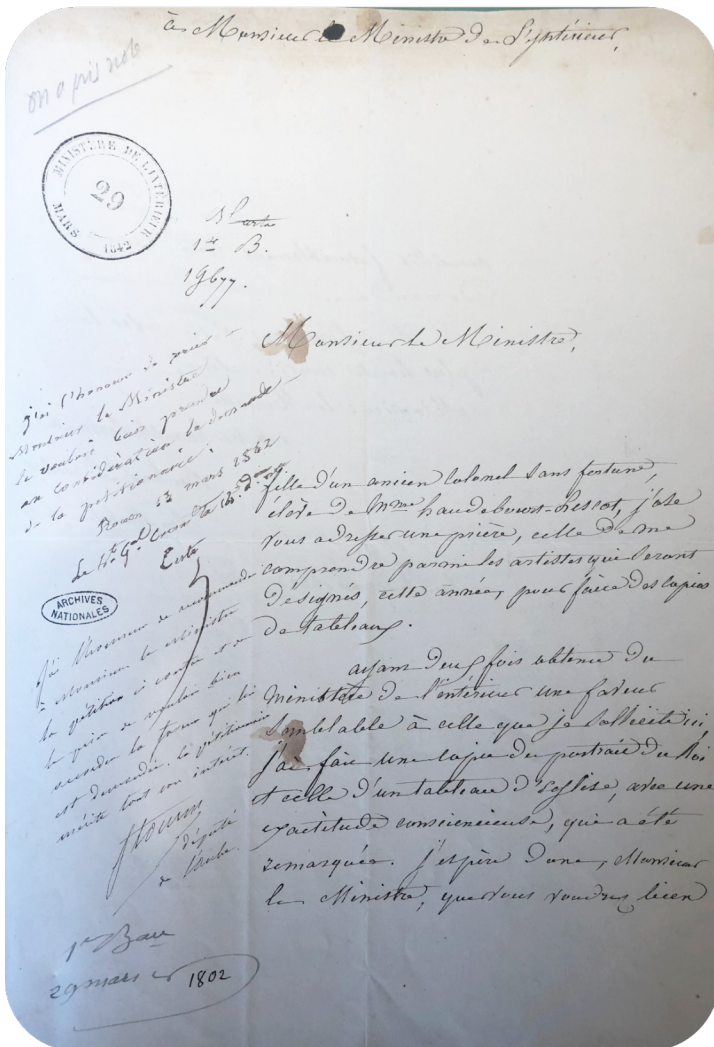 à Monsieur le Ministre de l'Intérieur,
on a pris note
MINISTÈRE DE L'INTÉRIEUR
29
MARS
1842
1re B.
19677.
Monsieur le Ministre,
j'ai l'honneur de prier
Monsieur le Ministre
de vouloir bien prendre
en considération la demande
de la petitionnaire.
Rouen 23 mars 1842
Le Gal
Teste
ARCHIVES
NATIONALES
J'ai l'honneur de recommander
à Monsieur le Ministre
la pétition ci contre et
le prie de vouloir bien
accorder la faveur qui lui
est demandée. la pétitionnaire
mérite tout son intérêt.
Stourm
Député
de l'Aube.
fille d'un ancien Colonel sans fortune,
élève de Mme haudebourt-lescot, j'ose
vous adresser une prière, celle de me
comprendre parmi les artistes qui seront
désignés, cette année, pour faire des copies
de tableaux.
ayant deux fois obtenu du
Ministère de l'intérieur une faveur
semblable à celle que je sollicite ici
j'ai fait une copie du portrait du Roi
et celle d'un tableau d'église, avec une
exactitude consciencieuse, qui a été
remarquée. j'espère donc, Monsieur
le Ministre, que vous voudrez bien
1er Bau
29 mars
1802